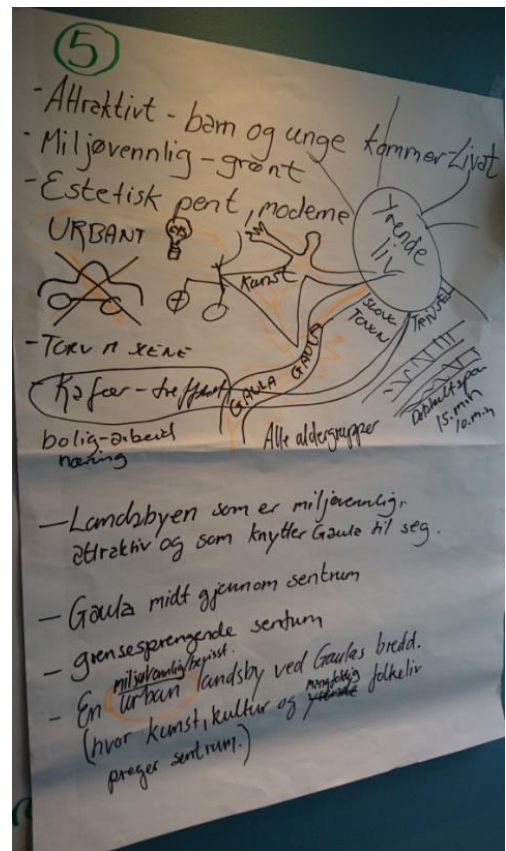 5
- Attraktivt - barn og unge kommer - Livat
- Miljøvennlig - grønt
- Estetisk pent, moderne
URBANT
Yrende
liv
Kunst
SLOW
TOWN
- TORV M SCENE
GAULA GAULA
- Kafeer - treffpunkt
Dobbeltspor
15. min
10. min
bolig - arbeid
næring
Alle aldergrupper
- Landsbyen som er miljøvennlig,
attraktiv og som knytter Gaula til seg.
- Gaula midt gjennom sentrum
- grensesprengende sentum
miljøvennlig/bevisst.
- En urban landsby ved Gaulas bredd.
(hvor kunst, kultur og mangfoldig folkeliv
preger sentrum.)